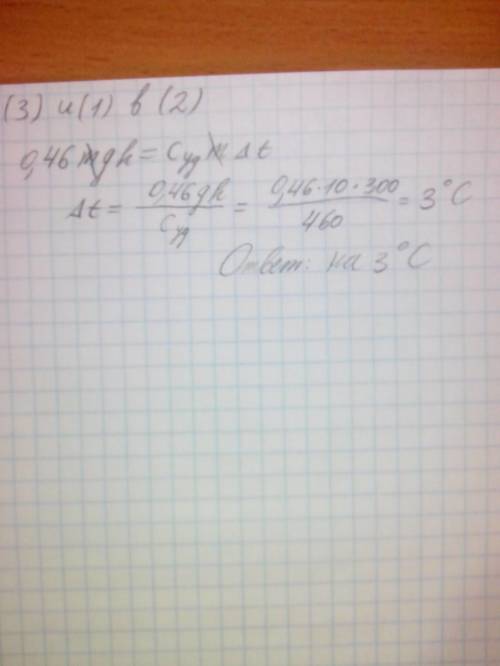 (3) и (1) в (2)
0,46mgh = Cуд m Δt
Δt = 0,46gh / Cуд = 0,46·10·300 / 460 = 3°C
Ответ: на 3°C